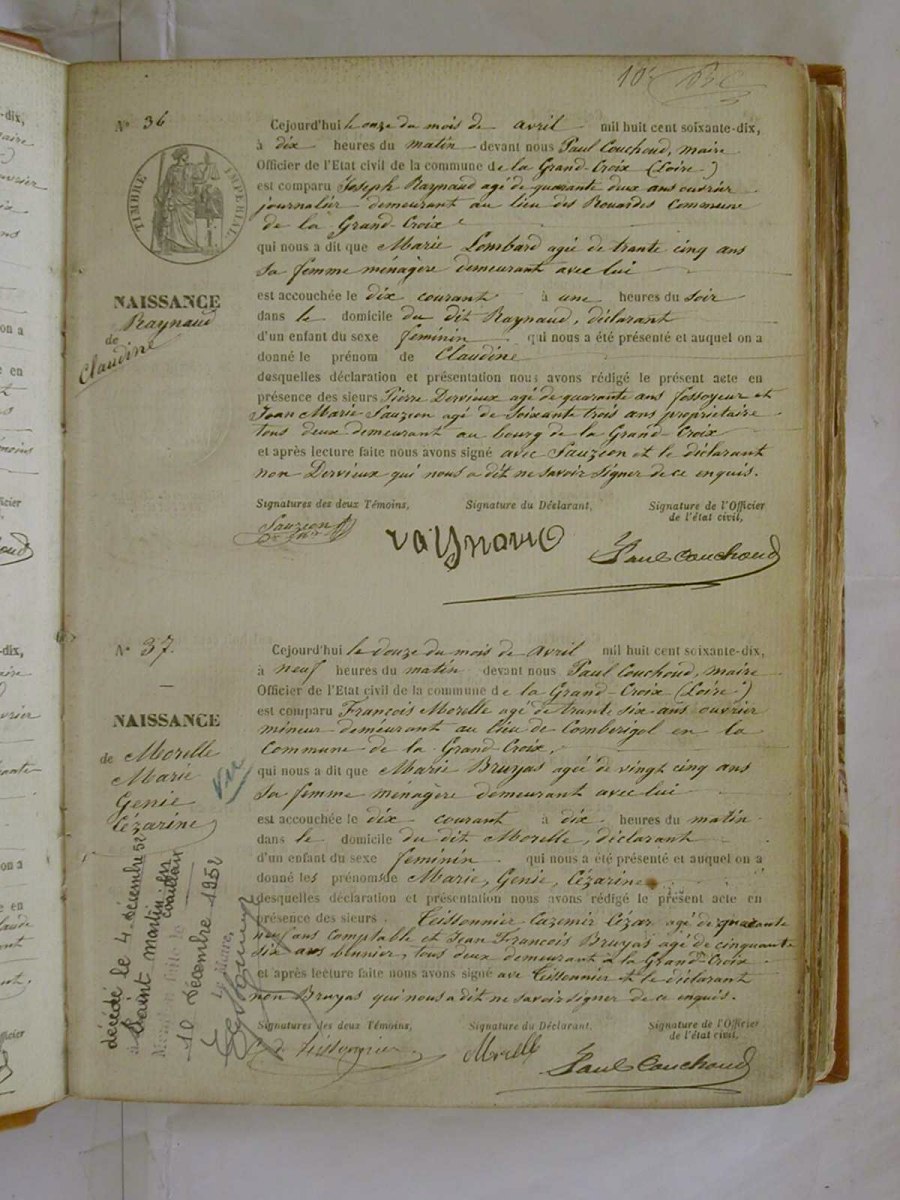 Nº 36
TIMBRE IMPÉRIAL
NAISSANCE
de Raynaud
Claudine
Cejourd'hui le onze du mois de avril mil huit cent soixante-dix,
à dix heures du matin devant nous Paul Couchoud, maire
Officier de l'Etat civil de la commune de la Grand-Croix (Loire)
est comparu Joseph Raynaud agé de quarante deux ans ouvrier
journalier demeurant au lieu des Rouardes commune
de la Grand-Croix
qui nous a dit que Marie Lombard agée de trante cinq ans
sa femme ménagère demeurant avec lui
est accouchée le dix courant à une heures du soir
dans le domicile du dit Raynaud, déclarant
d'un enfant du sexe féminin qui nous a été présenté et auquel on a
donné le prénom de Claudine
desquelles déclaration et présentation nous avons rédigé le présent acte en
présence des sieurs Pierre Dervieux agé de quarante ans fossoyeur et
Jean Marie Sauzéon agé de soixante trois ans propriétaire
tous deux demeurant au bourg de la Grand-Croix
et après lecture faite nous avons signé avec Sauzéon et le déclarant
non Dervieux qui nous a dit ne savoir signer de ce enquis.
Signatures des deux Témoins, Signature du Déclarant, Signature de l'Officier
de l'état civil,
Sauzéon
Raynaud
Paul Couchoud
Nº 37.
NAISSANCE
de Morelle
Marie
Genie
Cézarine
Vu
décédé le 4 décembre 52
à Saint Martin la
Coailleux
10 décembre 1952
Le Maire,
Cejourd'hui le douze du mois de avril mil huit cent soixante-dix,
à neuf heures du matin devant nous Paul Couchoud, maire
Officier de l'Etat civil de la commune de la Grand-Croix (Loire)
est comparu François Morelle agé de trante six ans ouvrier
mineur demeurant au lieu de Comberigol en la
commune de la Grand-Croix,
qui nous a dit que Marie Bruyas agée de vingt cinq ans
sa femme menagère demeurant avec lui
est accouchée le dix courant à dix heures du matin
dans le domicile du dit Morelle, déclarant
d'un enfant du sexe féminin qui nous a été présenté et auquel on a
donné les prénoms de Marie, Genie, Cézarine
desquelles déclaration et présentation nous avons rédigé le présent acte en
présence des sieurs Teissonnier Cazemir Cézar agé de quarante
neuf ans comptable et Jean François Bruyas agé de cinquante
dix ans, tous deux demeurant à la Grand-Croix
et après lecture faite nous avons signé avec Teissonnier et le déclarant
non Bruyas qui nous a dit ne savoir signer de ce enquis.
Signatures des deux Témoins, Signature du Déclarant, Signature de l'Officier
de l'état civil,
Teissonnier
Morelle
Paul Couchoud